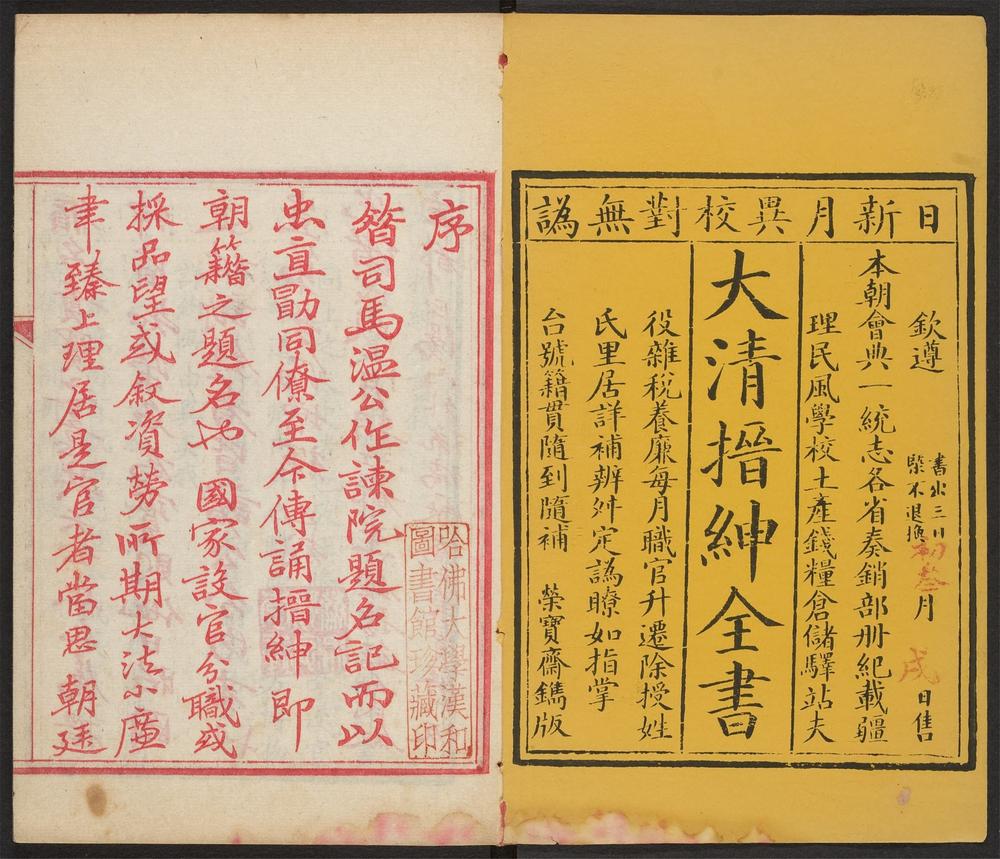 日新月異校對無譌
欽遵
書出三日
槩不退換
叁月 日售
本朝會典一統志各省奏銷部册紀載疆
理民風學校土產錢糧倉儲驛站夫
大清搢紳全書
役雜稅養廉每月職官升遷除授姓
氏里居詳補辨舛定譌瞭如指掌
台號籍貫隨到隨補 榮寶齋鐫版
序
昔司馬温公作諫院題名記而以
忠直勖同僚至今傳誦搢紳即
朝籍之題名也 國家設官分職或
採品望或敘資勞所期大法小廉
聿臻上理居是官者當思 朝廷
哈佛大學漢和
圖書館珍藏印